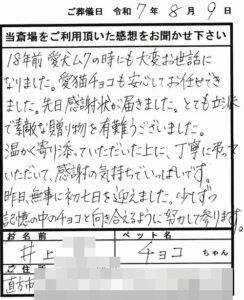 ご葬儀日 令和 7 年 8 月 9 日
当斎場をご利用頂いた感想をお聞かせ下さい
18年前 愛犬ムクの時にも大変お世話に
なりました。愛猫チョコも安心してお任せでき
ました。先日感謝状が届きました。とても立派
で素敵な贈り物を有難うございました。
温かく寄り添っていただいた上に、丁寧に弔って
いただいて、感謝の気持ちでいっぱいです。
昨日、無事に初七日を迎えました。少しずつ
記憶の中のチョコと向き合えるように努力して参ります。
お名前 ペット名
井上 チョコ ちゃん
ご住所
直方市